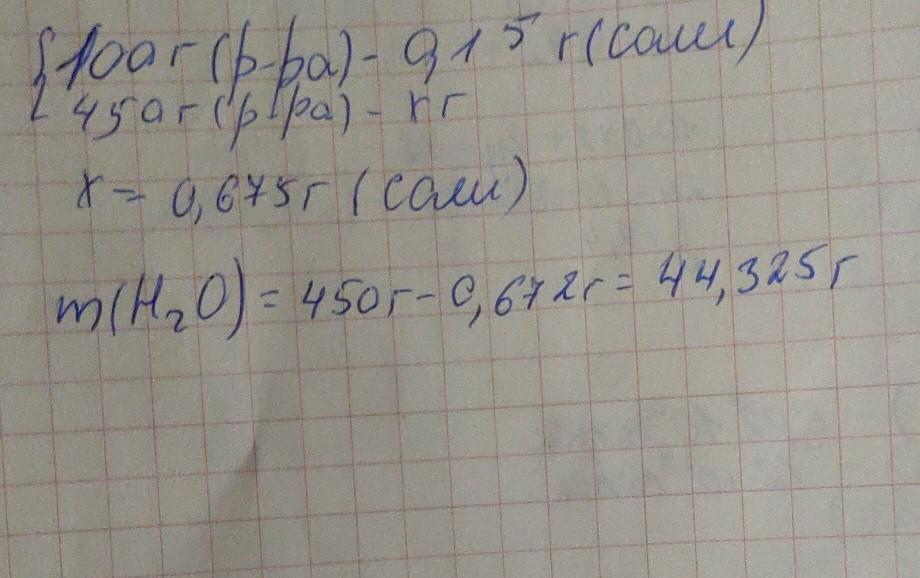 {100г (р-ра) - 0,15 г (соли)
450г (р-ра) - х г
х = 0,675г (соли)
m(H₂O) = 450г - 0,672г = 44,325г